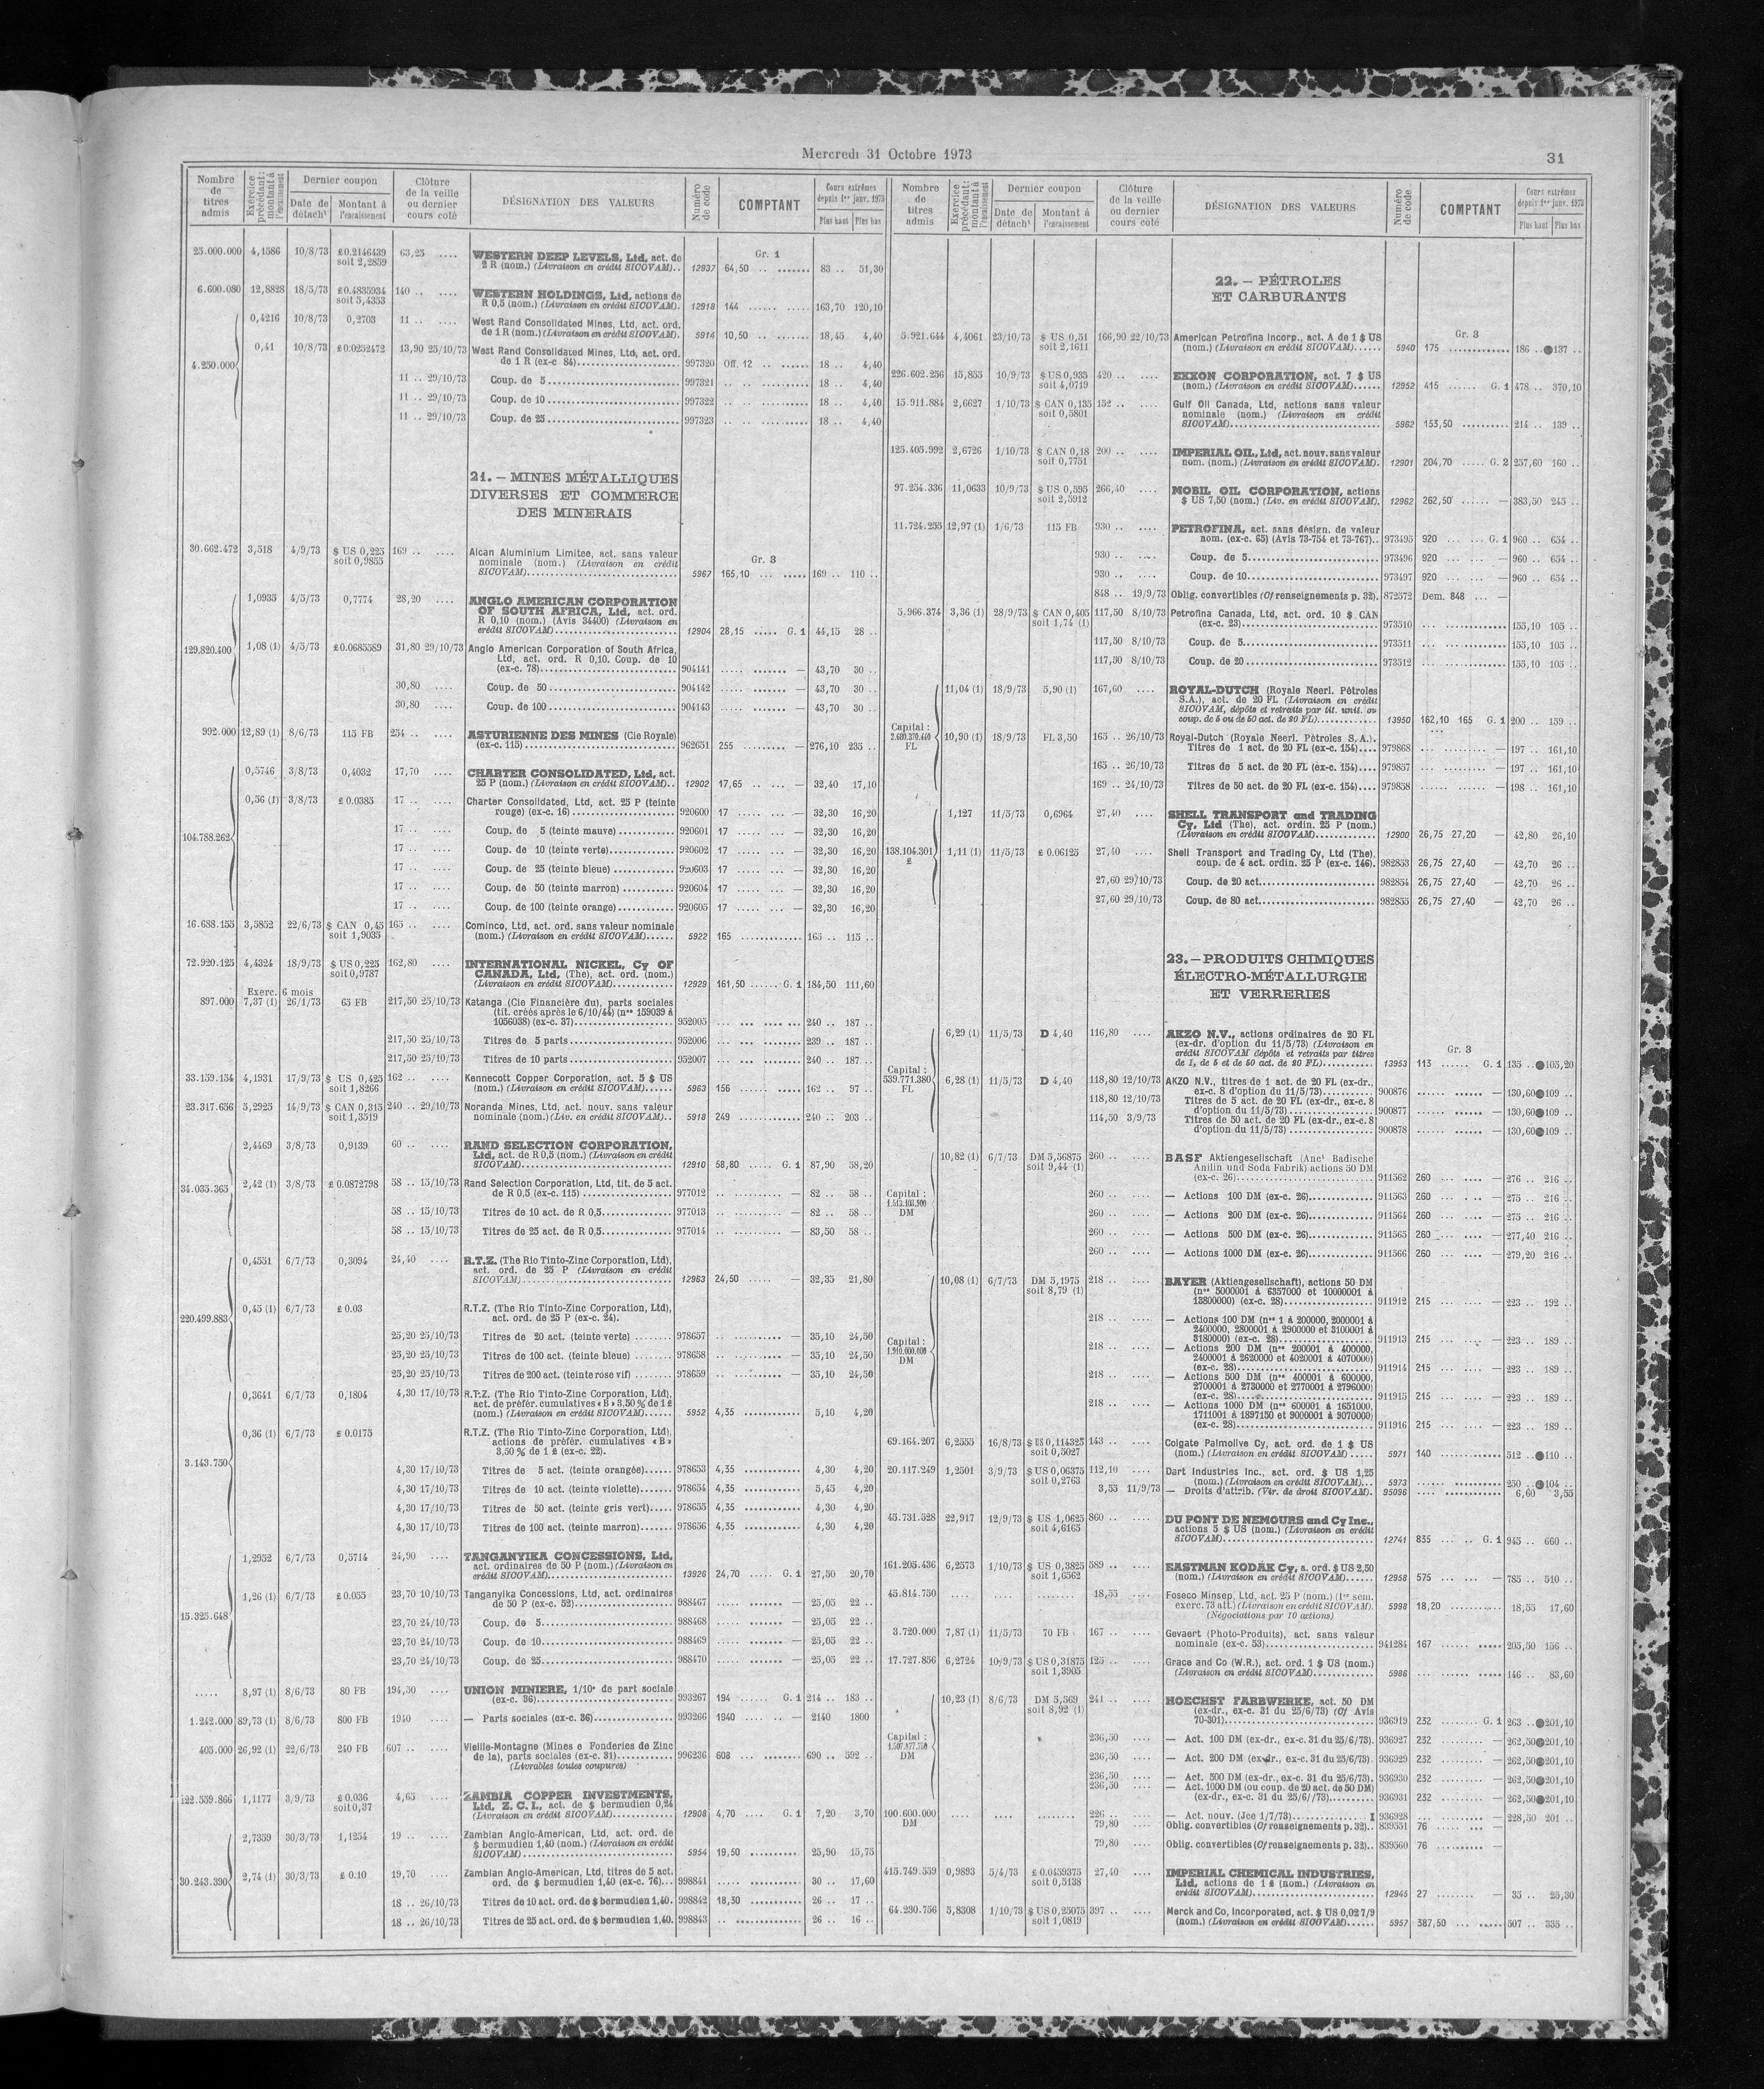 Mercredi 31 Octobre 1973
31
Nombre de titres admis
Exercice précédent: montant à l'encaissement
Dernier coupon
Date de détachᵗ
Montant à l'encaissement
Clôture de la veille ou dernier cours coté
DÉSIGNATION DES VALEURS
Numéro de code
COMPTANT
Cours extrêmes depuis 1ᵉʳ janv. 1973
Plus haut
Plus bas
Gr. 1
25.000.000 4,1586 10/8/73 £0.2146439 63,25 .... WESTERN DEEP LEVELS, Ltd, act. de
soit 2,2859 2 R (nom.) (Livraison en crédit SICOVAM).. 12937 64,50 .. ....... 83 .. 51,30
6.600.080 12,8828 18/5/73 £0.4835934 140 .. .... WESTERN HOLDINGS, Ltd, actions de
soit 5,4353 R 0,5 (nom.) (Livraison en crédit SICOVAM). 12918 144 163,70 120,10
0,4216 10/8/73 0,2703 11 .. .... West Rand Consolidated Mines, Ltd, act. ord.
de 1 R (nom.) (Livraison en crédit SICOVAM). 5914 10,50 18,45 4,40
4.250.000 0,41 10/8/73 £0.0252472 13,90 25/10/73 West Rand Consolidated Mines, Ltd, act. ord.
de 1 R (ex-c 84) 997320 Off. 12 18 .. 4,40
11 .. 29/10/73 Coup. de 5 997321 18 .. 4,40
11 .. 29/10/73 Coup. de 10 997322 18 .. 4,40
11 .. 29/10/73 Coup. de 25 997323 18 .. 4,40
21. — MINES MÉTALLIQUES
DIVERSES ET COMMERCE
DES MINERAIS
Gr. 3
30.662.472 3,518 4/9/73 $ US 0,225 169 .. .... Alcan Aluminium Limitee, act. sans valeur
soit 0,9855 nominale (nom.) (Livraison en crédit
SICOVAM) 5967 165,10 169 .. 110 ..
1,0935 4/5/73 0,7774 28,20 .... ANGLO AMERICAN CORPORATION
OF SOUTH AFRICA, Ltd, act. ord.
R 0,10 (nom.) (Avis 34400) (Livraison en
crédit SICOVAM) 12904 28,15 G. 1 44,15 28 ..
129.820.400 1,08 (1) 4/5/73 £0.0685589 31,80 29/10/73 Anglo American Corporation of South Africa,
Ltd, act. ord. R 0,10. Coup. de 10
(ex-c. 78) 904141 — 43,70 30 ..
30,80 .... Coup. de 50 904142 — 43,70 30 ..
30,80 .... Coup. de 100 904143 — 43,70 30 ..
992.000 12,89 (1) 8/6/73 115 FB 254 .. .... ASTURIENNE DES MINES (Cie Royale)
(ex-c. 115) 962651 255 — 276,10 235 ..
0,5746 3/8/73 0,4032 17,70 .... CHARTER CONSOLIDATED, Ltd, act.
25 P (nom.) (Livraison en crédit SICOVAM).. 12902 17,65 — 32,40 17,10
104.788.262 0,56 (1) 3/8/73 £ 0.0385 17 .. .... Charter Consolidated, Ltd, act. 25 P (teinte
rouge) (ex-c. 16) 920600 17 — 32,30 16,20
17 .. .... Coup. de 5 (teinte mauve) 920601 17 — 32,30 16,20
17 .. .... Coup. de 10 (teinte verte) 920602 17 — 32,30 16,20
17 .. .... Coup. de 25 (teinte bleue) 920603 17 — 32,30 16,20
17 .. .... Coup. de 50 (teinte marron) 920604 17 — 32,30 16,20
17 .. .... Coup. de 100 (teinte orange) 920605 17 — 32,30 16,20
16.688.155 3,5852 22/6/73 $ CAN 0,45 165 .. .... Cominco, Ltd, act. ord. sans valeur nominale
soit 1,9035 (nom.) (Livraison en crédit SICOVAM) 5922 165 165 .. 115 ..
72.920.125 4,4324 18/9/73 $ US 0,225 162,80 .... INTERNATIONAL NICKEL, Cy OF
soit 0,9787 CANADA, Ltd, (The), act. ord. (nom.)
(Livraison en crédit SICOVAM) 12929 161,50 G. 1 184,50 111,60
Exerc. 6 mois
897.000 7,37 (1) 26/1/73 63 FB 217,50 25/10/73 Katanga (Cie Financière du), parts sociales
(tit. créés après le 6/10/44) (nᵒˢ 159039 à
1056038) (ex-c. 37) 952005 240 .. 187 ..
217,50 25/10/73 Titres de 5 parts 952006 239 .. 187 ..
217,50 25/10/73 Titres de 10 parts 952007 240 .. 187 ..
33.159.154 4,1931 17/9/73 $ US 0,425 162 .. .... Kennecott Copper Corporation, act. 5 $ US
soit 1,8266 (nom.) (Livraison en crédit SICOVAM) 5963 156 162 .. 97 ..
23.317.656 5,2925 14/9/73 $ CAN 0,315 240 .. 29/10/73 Noranda Mines, Ltd, act. nouv. sans valeur
soit 1,3519 nominale (nom.) (Liv. en crédit SICOVAM) 5918 249 240 .. 203 ..
2,4469 3/8/73 0,9139 60 .. .... RAND SELECTION CORPORATION,
Ltd, act. de R 0,5 (nom.) (Livraison en crédit
SICOVAM) 12910 58,80 G. 1 87,90 58,20
34.035.365 2,42 (1) 3/8/73 £ 0.0872798 58 .. 15/10/73 Rand Selection Corporation, Ltd, tit. de 5 act.
de R 0,5 (ex-c. 115) 977012 — 82 .. 58 ..
58 .. 15/10/73 Titres de 10 act. de R 0,5 977013 — 82 .. 58 ..
58 .. 15/10/73 Titres de 25 act. de R 0,5 977014 — 83,50 58 ..
0,4551 6/7/73 0,3094 24,40 .... R.T.Z. (The Rio Tinto-Zinc Corporation, Ltd),
act. ord. de 25 P (Livraison en crédit
SICOVAM) 12963 24,50 — 32,35 21,80
220.499.883 0,45 (1) 6/7/73 £ 0.03 R.T.Z. (The Rio Tinto-Zinc Corporation, Ltd),
act. ord. de 25 P (ex-c. 24).
25,20 25/10/73 Titres de 20 act. (teinte verte) 978657 — 35,10 24,50
25,20 25/10/73 Titres de 100 act. (teinte bleue) 978658 — 35,10 24,50
25,20 25/10/73 Titres de 200 act. (teinte rose vif) 978659 — 35,10 24,50
0,3641 6/7/73 0,1804 4,30 17/10/73 R.T.Z. (The Rio Tinto-Zinc Corporation, Ltd),
act. de préfér. cumulatives « B » 3,50 % de 1 £
(nom.) (Livraison en crédit SICOVAM) 5952 4,35 5,10 4,20
3.143.750 0,36 (1) 6/7/73 £ 0.0175 R.T.Z. (The Rio Tinto-Zinc Corporation, Ltd),
actions de préfér. cumulatives « B »
3,50 % de 1 £ (ex-c. 22).
4,30 17/10/73 Titres de 5 act. (teinte orangée) 978653 4,35 4,30 4,20
4,30 17/10/73 Titres de 10 act. (teinte violette) 978654 4,35 5,45 4,20
4,30 17/10/73 Titres de 50 act. (teinte gris vert) 978655 4,35 4,30 4,20
4,30 17/10/73 Titres de 100 act. (teinte marron) 978656 4,35 4,30 4,20
1,2952 6/7/73 0,5714 24,90 .... TANGANYIKA CONCESSIONS, Ltd,
act. ordinaires de 50 P (nom.) (Livraison en
crédit SICOVAM) 13926 24,70 G. 1 27,50 20,70
15.325.648 1,26 (1) 6/7/73 £ 0.055 23,70 10/10/73 Tanganyika Concessions, Ltd, act. ordinaires
de 50 P (ex-c. 52) 988467 — 25,05 22 ..
23,70 24/10/73 Coup. de 5 988468 — 25,05 22 ..
23,70 24/10/73 Coup. de 10 988469 — 25,05 22 ..
23,70 24/10/73 Coup. de 25 988470 — 25,05 22 ..
..... 8,97 (1) 8/6/73 80 FB 194,50 .... UNION MINIERE, 1/10ᵉ de part sociale
(ex-c. 36) 993267 194 G. 1 214 .. 183 ..
1.242.000 89,73 (1) 8/6/73 800 FB 1940 .... — Parts sociales (ex-c. 36) 993266 1940 — 2140 1800
405.000 26,92 (1) 22/6/73 240 FB 607 .. .... Vieille-Montagne (Mines e Fonderies de Zinc
de la), parts sociales (ex-c. 31) 996236 608 690 .. 592 ..
(Livrables toutes coupures)
122.559.866 1,1177 3/9/73 £ 0.036 4,65 .... ZAMBIA COPPER INVESTMENTS,
soit 0,37 Ltd, Z. C. I., act. de $ bermudien 0,24
(Livraison en crédit SICOVAM) 12908 4,70 G. 1 7,20 3,70
2,7359 30/3/73 1,1254 19 .. .... Zambian Anglo-American, Ltd, act. ord. de
$ bermudien 1,40 (nom.) (Livraison en crédit
SICOVAM) 5954 19,50 25,90 15,75
30.243.390 2,74 (1) 30/3/73 £ 0.10 19,70 .... Zambian Anglo-American, Ltd, titres de 5 act.
ord. de $ bermudien 1,40 (ex-c. 76) 998841 30 .. 17,60
18 .. 26/10/73 Titres de 10 act. ord. de $ bermudien 1,40. 998842 18,50 26 .. 17 ..
18 .. 26/10/73 Titres de 25 act. ord. de $ bermudien 1,40. 998843 26 .. 16 ..
Nombre de titres admis
Exercice précédent: montant à l'encaissement
Dernier coupon
Date de détachᵗ
Montant à l'encaissement
Clôture de la veille ou dernier cours coté
DÉSIGNATION DES VALEURS
Numéro de code
COMPTANT
Cours extrêmes depuis 1ᵉʳ janv. 1973
Plus haut
Plus bas
22. — PÉTROLES
ET CARBURANTS
Gr. 3
5.921.644 4,4061 23/10/73 $ US 0,51 166,90 22/10/73 American Petrofina Incorp., act. A de 1 $ US
soit 2,1611 (nom.) (Livraison en crédit SICOVAM) 5940 175 186 ..●137 ..
226.602.256 15,855 10/9/73 $ US 0,935 420 .. .... EXXON CORPORATION, act. 7 $ US
soit 4,0719 (nom.) (Livraison en crédit SICOVAM) 12952 415 G. 1 478 .. 370,10
15.911.884 2,6627 1/10/73 $ CAN 0,135 152 .. .... Gulf Oil Canada, Ltd, actions sans valeur
soit 0,5801 nominale (nom.) (Livraison en crédit
SICOVAM) 5962 153,50 214 .. 139 ..
125.405.992 2,6726 1/10/73 $ CAN 0,18 200 .. .... IMPERIAL OIL, Ltd, act. nouv. sans valeur
soit 0,7751 nom. (nom.) (Livraison en crédit SICOVAM). 12901 204,70 G. 2 257,60 160 ..
97.254.336 11,0633 10/9/73 $ US 0,595 266,40 .... MOBIL OIL CORPORATION, actions
soit 2,5912 $ US 7,50 (nom.) (Liv. en crédit SICOVAM). 12962 262,50 — 383,50 245 ..
11.724.255 12,97 (1) 1/6/73 115 FB 930 .. .... PETROFINA, act. sans désign. de valeur
nom. (ex-c. 65) (Avis 73-754 et 73-767).. 973495 920 G. 1 960 .. 654 ..
930 .. .... Coup. de 5 973496 920 — 960 .. 654 ..
930 .. .... Coup. de 10 973497 920 — 960 .. 654 ..
848 .. 19/9/73 Oblig. convertibles (Cf renseignements p. 32). 872572 Dem. 848 —
5.966.374 3,36 (1) 28/9/73 $ CAN 0,405 117,50 8/10/73 Petrofina Canada, Ltd, act. ord. 10 $ CAN
soit 1,74 (1) (ex-c. 23) 973510 155,10 105 ..
117,50 8/10/73 Coup. de 5 973511 155,10 105 ..
117,50 8/10/73 Coup. de 20 973512 155,10 105 ..
11,04 (1) 18/9/73 5,90 (1) 167,60 .... ROYAL-DUTCH (Royale Neerl. Pétroles
S.A.), act. de 20 FL (Livraison en crédit
SICOVAM, dépôts et retraits par tit. unit. ou
coup. de 5 ou de 50 act. de 20 FL) 13950 162,10 165 G. 1 200 .. 159 ..
Capital : FL 10,90 (1) 18/9/73 FL 3,50 165 .. 26/10/73 Royal-Dutch (Royale Neerl. Pétroles S.A.).
Titres de 1 act. de 20 FL (ex-c. 154) 979868 — 197 .. 161,10
165 .. 26/10/73 Titres de 5 act. de 20 FL (ex-c. 154) 979857 — 197 .. 161,10
169 .. 24/10/73 Titres de 50 act. de 20 FL (ex-c. 154) 979858 — 198 .. 161,10
1,127 11/5/73 0,6964 27,40 .... SHELL TRANSPORT and TRADING
Cy, Ltd (The), act. ordin. 25 P (nom.)
(Livraison en crédit SICOVAM) 12900 26,75 27,20 — 42,80 26,10
138.104.301 £ 1,11 (1) 11/5/73 £ 0.06125 27,40 .... Shell Transport and Trading Cy, Ltd (The),
coup. de 4 act. ordin. 25 P (ex-c. 146). 982853 26,75 27,40 — 42,70 26 ..
27,60 29/10/73 Coup. de 20 act. 982854 26,75 27,40 — 42,70 26 ..
27,60 29/10/73 Coup. de 80 act. 982855 26,75 27,40 — 42,70 26 ..
23. — PRODUITS CHIMIQUES
ÉLECTRO-MÉTALLURGIE
ET VERRERIES
Gr. 3
6,29 (1) 11/5/73 D 4,40 116,80 .... AKZO N.V., actions ordinaires de 20 FL
(ex-dr. d'option du 11/5/73) (Livraison en
crédit SICOVAM dépôts et retraits par titres
de 1, de 5 et de 50 act. de 20 FL) 13953 115 G. 1 135 ..●105,20
Capital : 539.771.380 FL 6,28 (1) 11/5/73 D 4,40 118,80 12/10/73 AKZO N.V., titres de 1 act. de 20 FL (ex-dr.,
ex-c. 8 d'option du 11/5/73) 900876 — 130,60●109 ..
118,80 12/10/73 Titres de 5 act. de 20 FL (ex-dr., ex-c. 8
d'option du 11/5/73) 900877 — 130,60●109 ..
114,50 3/9/73 Titres de 50 act. de 20 FL (ex-dr., ex-c. 8
d'option du 11/5/73) 900878 — 130,60●109 ..
10,82 (1) 6/7/73 DM 5,56875 260 .. .... BASF Aktiengesellschaft (Ancᵗ Badische
soit 9,44 (1) Anilin und Soda Fabrik) actions 50 DM
(ex-c. 26) 911562 260 — 276 .. 216 ..
Capital : DM
260 .. .... — Actions 100 DM (ex-c. 26) 911563 260 — 275 .. 216 ..
260 .. .... — Actions 200 DM (ex-c. 26) 911564 260 — 275 .. 216 ..
260 .. .... — Actions 500 DM (ex-c. 26) 911565 260 — 277,40 216 ..
260 .. .... — Actions 1000 DM (ex-c. 26) 911566 260 — 279,20 216 ..
10,08 (1) 6/7/73 DM 5,1975 218 .. .... BAYER (Aktiengesellschaft), actions 50 DM
soit 8,79 (1) (nᵒˢ 5000001 à 6357000 et 10000001 à
13800000) (ex-c. 28) 911912 215 — 223 .. 192 ..
Capital : DM
218 .. .... — Actions 100 DM (nᵒˢ 1 à 200000, 2000001 à
2400000, 2800001 à 2900000 et 3100001 à
3180000) (ex-c. 28) 911913 215 — 223 .. 189 ..
218 .. .... — Actions 200 DM (nᵒˢ 200001 à 400000,
2400001 à 2620000 et 4020001 à 4070000)
(ex-c. 28) 911914 215 — 223 .. 189 ..
218 .. .... — Actions 500 DM (nᵒˢ 400001 à 600000,
2700001 à 2730000 et 2770001 à 2796000)
(ex-c. 28) 911915 215 — 223 .. 189 ..
218 .. .... — Actions 1000 DM (nᵒˢ 600001 à 1651000,
1711001 à 1897150 et 9000001 à 9070000)
(ex-c. 28) 911916 215 — 223 .. 189 ..
69.164.207 6,2555 16/8/73 $ US 0,114325 143 .. .... Colgate Palmolive Cy, act. ord. de 1 $ US
soit 0,5027 (nom.) (Livraison en crédit SICOVAM) 5971 140 512 ..●110 ..
20.117.249 1,2501 3/9/73 $ US 0,06375 112,10 .... Dart Industries Inc., act. ord. $ US 1,25
soit 0,2763 (nom.) (Livraison en crédit SICOVAM) 5973 250 ..●104 ..
3,55 11/9/73 — Droits d'attrib. (Vir. de droit SICOVAM). 95096 6,60 3,55
45.731.528 22,917 12/9/73 $ US 1,0625 860 .. .... DU PONT DE NEMOURS and Cy Inc.,
soit 4,6165 actions 5 $ US (nom.) (Livraison en crédit
SICOVAM) 12741 835 G. 1 945 .. 660 ..
161.205.436 6,2573 1/10/73 $ US 0,3825 589 .. .... EASTMAN KODAK Cy, a. ord. $ US 2,50
soit 1,6562 (nom.) (Livraison en crédit SICOVAM) 12958 575 — 785 .. 510 ..
45.814.750 18,55 .... Foseco Minsep, Ltd, act. 25 P (nom.) (1ᵉʳ sem.
exerc. 73 att.) (Livraison en crédit SICOVAM). 5998 18,20 18,55 17,60
(Négociations par 10 actions)
3.720.000 7,87 (1) 11/5/73 70 FB 167 .. .... Gevaert (Photo-Produits), act. sans valeur
nominale (ex-c. 53) 941284 167 205,50 156 ..
17.727.856 6,2724 10/9/73 $ US 0,31875 125 .. .... Grace and Co (W.R.), act. ord. 1 $ US (nom.)
soit 1,3905 (Livraison en crédit SICOVAM) 5986 146 .. 83,60
10,23 (1) 8/6/73 DM 5,569 241 .. .... HOECHST FARBWERKE, act. 50 DM
soit 8,92 (1) (ex-dr., ex-c. 31 du 25/6/73) (Cf Avis
70-301) 936919 232 G. 1 263 ..●201,10
Capital : DM
236,50 .... — Act. 100 DM (ex-dr., ex-c. 31 du 25/6/73). 936927 232 — 262,50●201,10
236,50 .... — Act. 200 DM (ex-dr., ex-c. 31 du 25/6/73). 936929 232 — 262,50●201,10
236,50 .... — Act. 500 DM (ex-dr., ex-c. 31 du 25/6/73). 936930 232 — 262,50●201,10
236,50 .... — Act. 1000 DM (ou coup. de 20 act. de 50 DM)
(ex-dr., ex-c. 31 du 25/6//73) 936931 232 — 262,50●201,10
100.600.000 DM 226 .. .... — Act. nouv. (Jce 1/7/73) 936928 — 228,50 201 ..
79,80 .... Oblig. convertibles (Cf renseignements p. 32).. 839551 76 —
79,80 .... Oblig. convertibles (Cf renseignements p. 32).. 839560 76 —
415.749.559 0,9893 5/4/73 £ 0.0459375 27,40 .... IMPERIAL CHEMICAL INDUSTRIES,
soit 0,5138 Ltd, actions de 1 £ (nom.) (Livraison en
crédit SICOVAM) 12945 27 — 35 .. 25,30
64.230.756 5,8308 1/10/73 $ US 0,25075 397 .. .... Merck and Co, Incorporated, act. $ US 0,02 7/9
soit 1,0819 (nom.) (Livraison en crédit SICOVAM) 5957 387,50 507 .. 335 ..